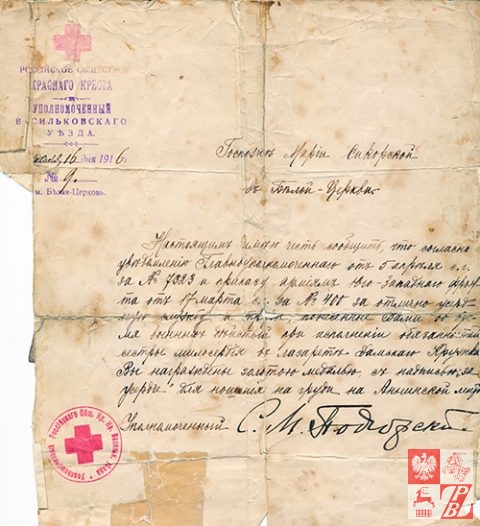 РОССІЙСКОЕ ОБЩЕСТВО
КРАСНАГО КРЕСТА
УПОЛНОМОЧЕННЫЙ
ВАСИЛЬКОВСКАГО
УѢЗДА.
16 дня 1916 г.
№ 9.
м. Бѣлая-Церковь.
Госпожѣ Маріи Сикорской
въ Бѣлой-Церкви.
Настоящимъ имѣю честь сообщить, что согласно
увѣдомленію Главноуполномоченнаго отъ 5 апрѣля с.г.
за № 7323 и приказу арміямъ Юго-Западнаго фрон
та отъ 17 марта с.г. за № 400 за отлично усерд
ную службу и труды, понесенные Вами во вре
мя военныхъ дѣйствій при исполненіи обязанностей
сестры милосердія въ лазаретѣ
Вы награждены золотою медалью, съ надписью „за
усердіе“ для ношенія на груди, на Аннинской лентѣ
Уполномоченный С. М. Подгорскій